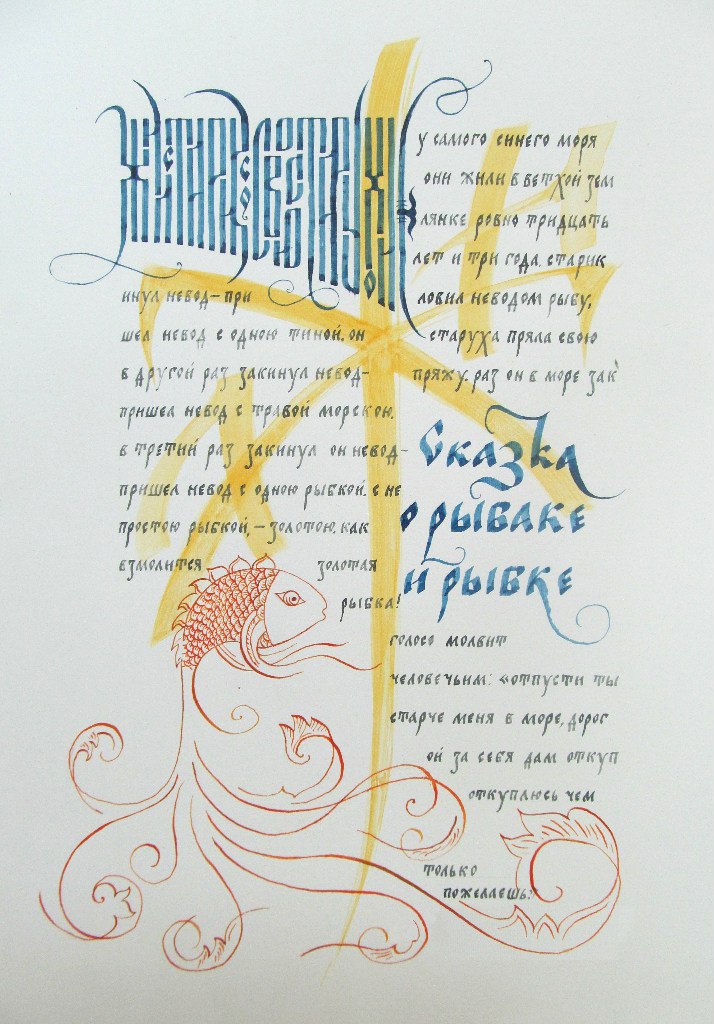 ЖИЛ СТАРИК СО СВОЕЮ СТАРУХОЙ
у самого синего моря
они жили в ветхой зем
лянке ровно тридцать
лет и три года. старик
ловил неводом рыбу,
старуха пряла свою
пряжу. раз он в море зак
инул невод – при
шел невод с одною тиной. он
в другой раз закинул невод –
пришел невод с травой морскою.
в третий раз закинул он невод –
пришел невод с одною рыбкой. с не
простою рыбкой, – золотою. как
взмолится золотая
рыбка!
Сказка
о рыбаке
и рыбке
голосо молвит
человечьим: «отпусти ты
старче меня в море, дорог
ой за себя дам откуп
откуплюсь чем
только
пожелаешь»